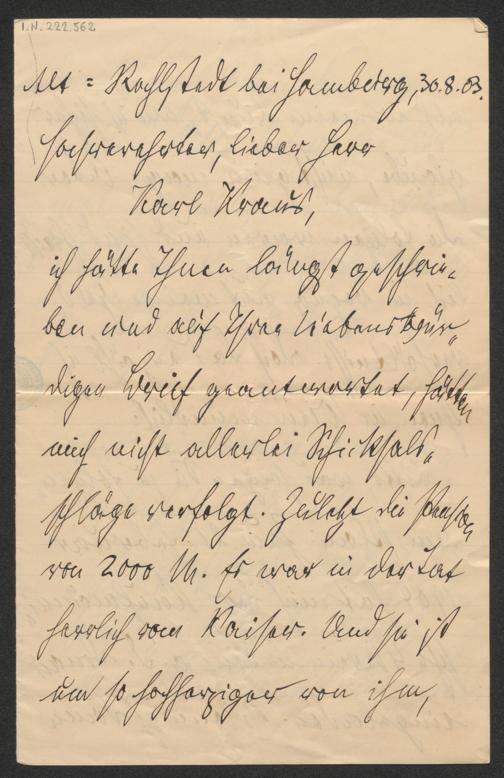 I.N. 222.562
Alt = Rahlstedt bei Hamburg, 30.8.03.
Hochverehrter, lieber Herr
Karl Kraus,
ich hätte Ihnen längst geschrie-
ben und auf Ihren liebenswür-
digen Brief geantwortet, hätten
mich nicht allerlei Schicksals-
schläge verfolgt. Zuletzt die Pension
von 2000 M. Es war in der Tat
herrlich vom Kaiser. Und sie ist
um so hochherziger von ihm,